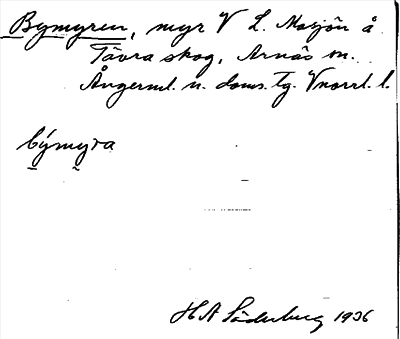 Bymyren, myr V L. Masjön å
Tävra skog, Arnäs sn.
Ångerml. n. doms. tg. Vnorrl. l.
býmyra
H A Söderberg 1936